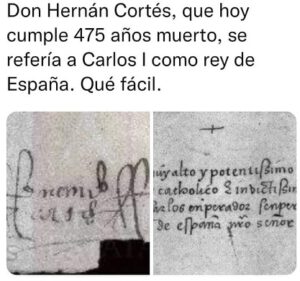 Don Hernán Cortés, que hoy
cumple 475 años muerto, se
refería a Carlos I como rey de
España. Qué fácil.
muy alto y potentissimo
catholico
carlos enperador senper
de españa nro señor